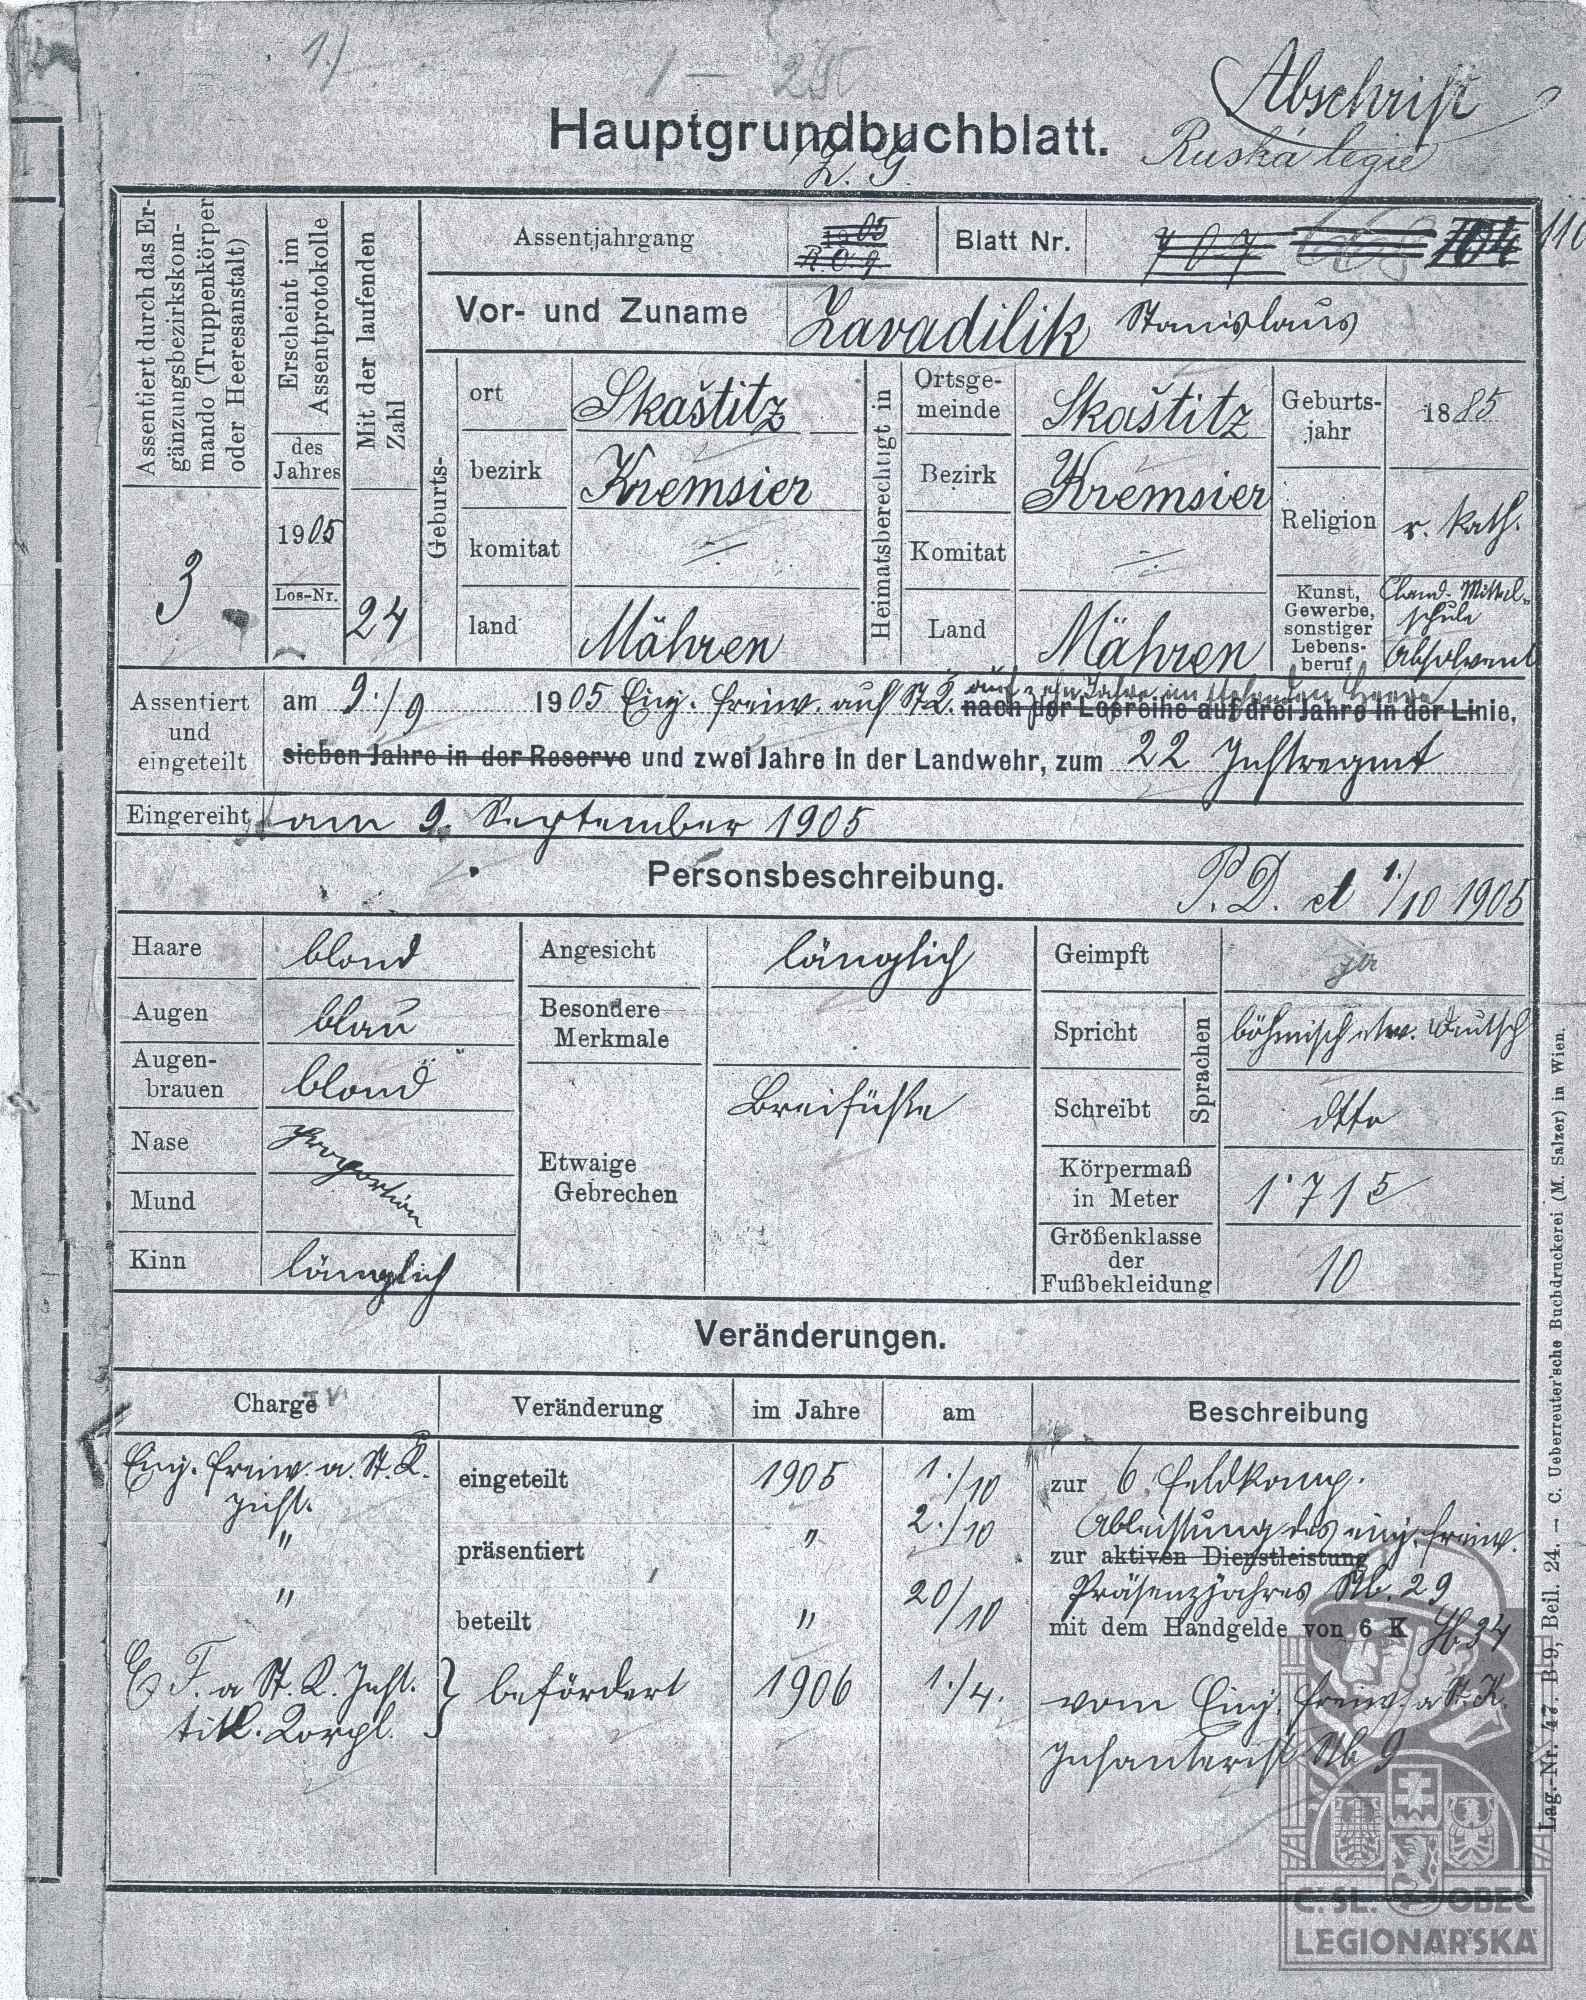 1.)
Abschrift
Hauptgrundbuchblatt.
Ruská legie
Z. G.
Assentiert durch das Er-
gänzungsbezirkskom-
mando (Truppenkörper
oder Heeresanstalt)
3
Erscheint im
Assentprotokolle
des
Jahres
1905
Los-Nr.
Mit der laufenden
Zahl
24
Assentjahrgang 1905
Blatt Nr. 707 704 110
Vor- und Zuname Zavadilik Stanislaus
Geburts-
ort Skaštitz
bezirk Kremsier
komitat -:-
land Mähren
Heimatsberechtigt in
Ortsge-
meinde Skaštitz
Bezirk Kremsier
Komitat -:-
Land Mähren
Geburts-
jahr 1885
Religion r. kath.
Kunst,
Gewerbe,
sonstiger
Lebens-
beruf
Mittel-
schule
Absolvent
Assentiert
und
eingeteilt
auf zehn Jahre im stehenden Heere
am 9./9 1905 Einj. freiw. auf St. K. nach der Losreihe auf drei Jahre in der Linie,
sieben Jahre in der Reserve und zwei Jahre in der Landwehr, zum 22 Inftregmt
Eingereiht am 9. September 1905
Personsbeschreibung.
P. D. et 1./10 1905
Haare blond
Augen blau
Augen-
brauen blond
Nase
Mund
Proportion
Kinn länglich
Angesicht länglich
Besondere
Merkmale
Etwaige
Gebrechen
Geimpft ja
Sprachen
Spricht böhmisch etw. deutsch
Schreibt dtto
Körpermaß
in Meter 1·715
Größenklasse
der
Fußbekleidung 10
Veränderungen.
Charge Veränderung im Jahre am Beschreibung
Einj. freiw. a. St. K.
Inft. eingeteilt 1905 1./10 zur 6. Feldkomp.
Ableistung des einj. freiw.
" präsentiert " 2./10 zur aktiven Dienstleistung
Präsenzjahres Stb. 29
" beteilt " 20/10 mit dem Handgelde von 6 K Stb 34
E. F. a St. K. Inft.
titl. Korpl. } befördert 1906 1./4. vom Einj. freiw. a St. K.
Infanterist Stb 9
Lag.-Nr. 47. B-9, Beil. 24. — C. Ueberreuter'sche Buchdruckerei (M. Salzer) in Wien.
Č.SL. OBEC
LEGIONÁŘSKÁ